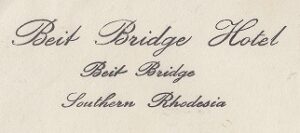 Beit Bridge Hotel
Beit Bridge
Southern Rhodesia